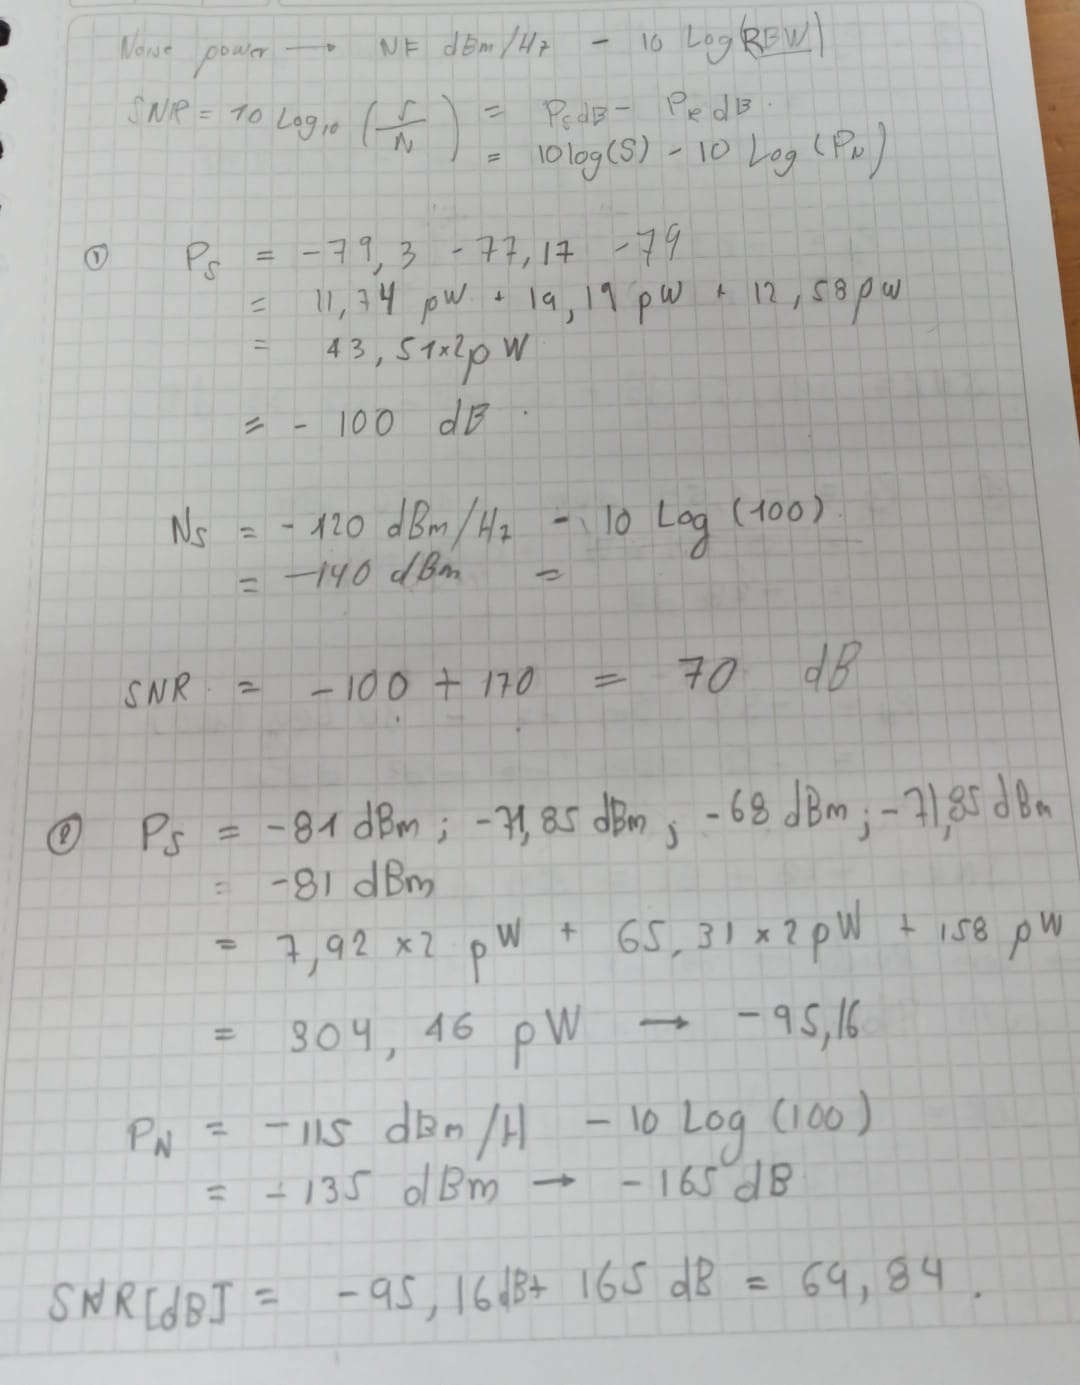 Noise power → NF dBm/Hz - 10 Log(RBW)
SNR = 10 Log10 (S/N) = PS dB - PR dB.
= 10 log(S) - 10 Log (PN)
① PS = -79,3 -77,17 -79
= 11,74 pW + 19,19 pW + 12,58 pW
= 43,51x2pW
= - 100 dB.
NS = -120 dBm/Hz - 10 Log (100)
= -140 dBm =
SNR = -100 + 170 = 70 dB
② PS = -81 dBm; -71,85 dBm; -68 dBm; -71,85 dBm
= -81 dBm
= 7,92 x2 pW + 65,31 x 2 pW + 158 pW
= 304,46 pW → -95,16
PN = -115 dBm/H - 10 Log (100)
= -135 dBm → -165 dB
SNR[dB] = -95,16dB+ 165 dB = 69,84.